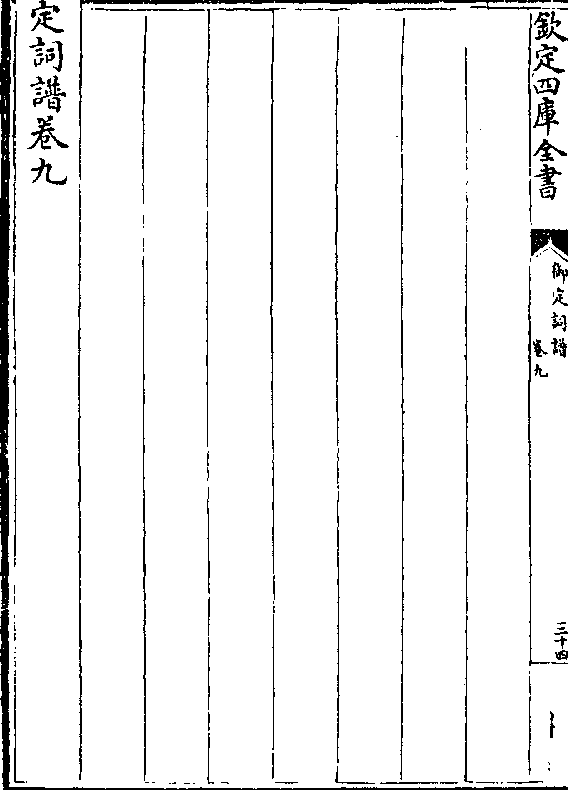 欽定四庫全書
御定詞譜
卷九
三十四
定詞譜卷九